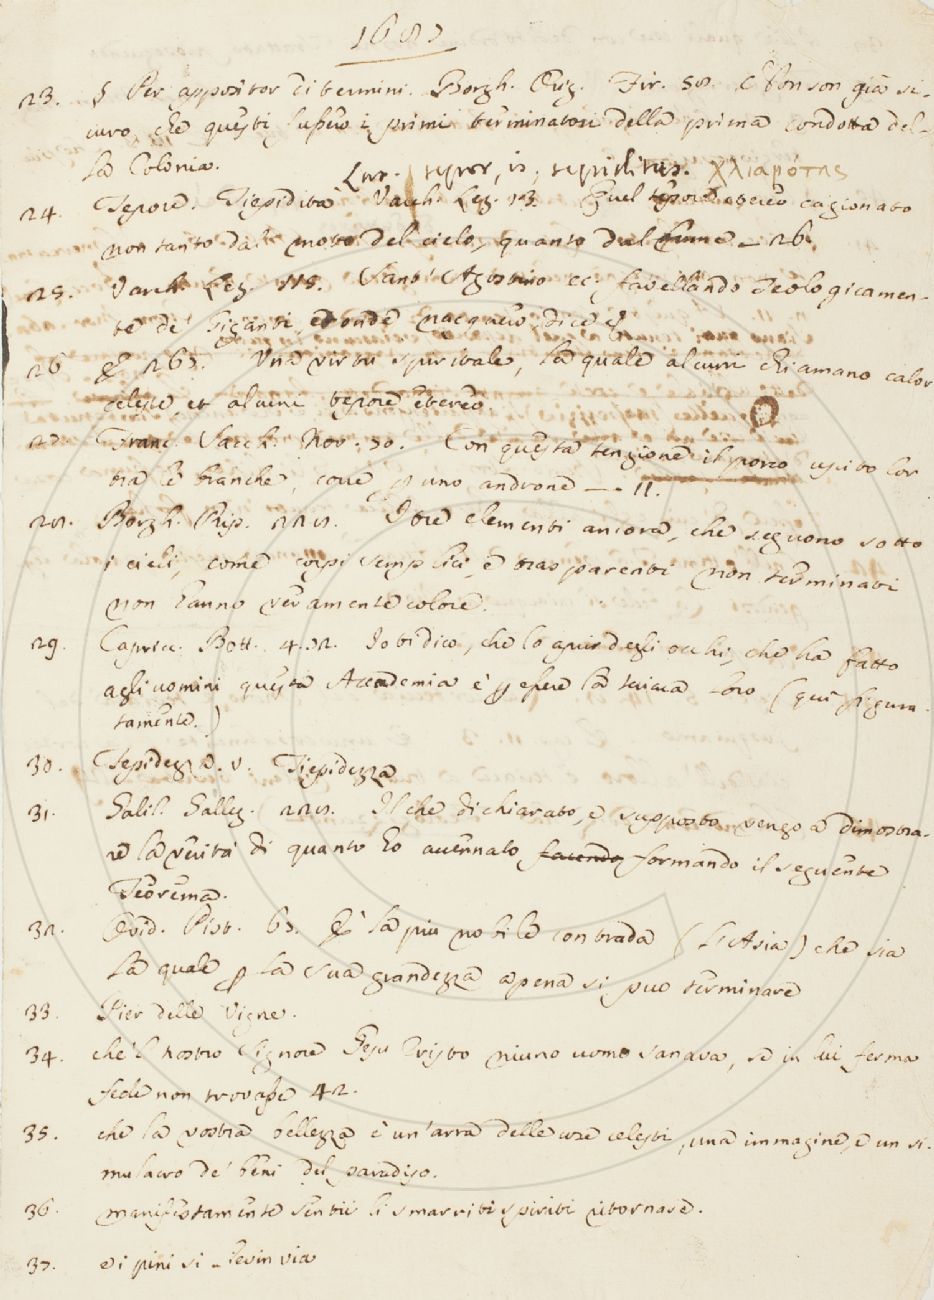 1687
23. § Per appositor di termini. Borgh. Orig. Fir. 58. E' non son già si-
curo, che questi fussero i primi terminatori della prima condotta del-
la Colonia.
Lat. tepor, is, tepiditas. χλιαρότης
24. Tepore. Tiepidità Varch. Lez. 13. Quel tepore etereo cagionato
non tanto dal moto del cielo, quanto dal lume _ 26.
25. Varch. Lez. 115. Sant' Agostino ec. favellando Teologicamen-
te de' Giganti, et onde nacquero, dice
26 E 263. Una virtù spiritale, la quale alcuni chiamano calor
celeste, et alcuni tepore etereo.
27. Franc. Sacch. Nov. 70. Con questa tenzione il porco uscito lor
tra le branche, corre p uno androne _. 11.
28. Borgh. Rip. 228. I tre elementi ancora, che seguono sotto
i cieli, come corpi semplici, e trasparenti non terminati
non hanno veramente colore.
29. Capricc. Bott. 4. 72. Io ti dico, che lo aprir degli occhi, che ha fatto
agli uomini questa Accademia è p essere la teriaca loro (qui figura-
tamente.)
30. Tepidezza. v. Tiepidezza
31. Galil. Galleg. 228. Il che dichiarato, e supposto vengo a dimostra-
re la verità di quanto ho accennato facendo formando il seguente
Teorema.
32. Ovid. Pist. 63. E' la più nobile contrada (l'Asia) che sia
la quale p la sua grandezza apena si puo terminare
33. Pier delle Vigne.
34. che'l nostro Signore Gesu Cristo niuno uomo sanava, se in lui ferma
fede non trovasse 42.
35. che la vostra bellezza è un'arra delle cose celesti, una immagine, e un si-
mulacro de' beni del paradiso.
36. manifestamente sentii li smarriti spiriti ritornare.
37. e i pini si _ levin via